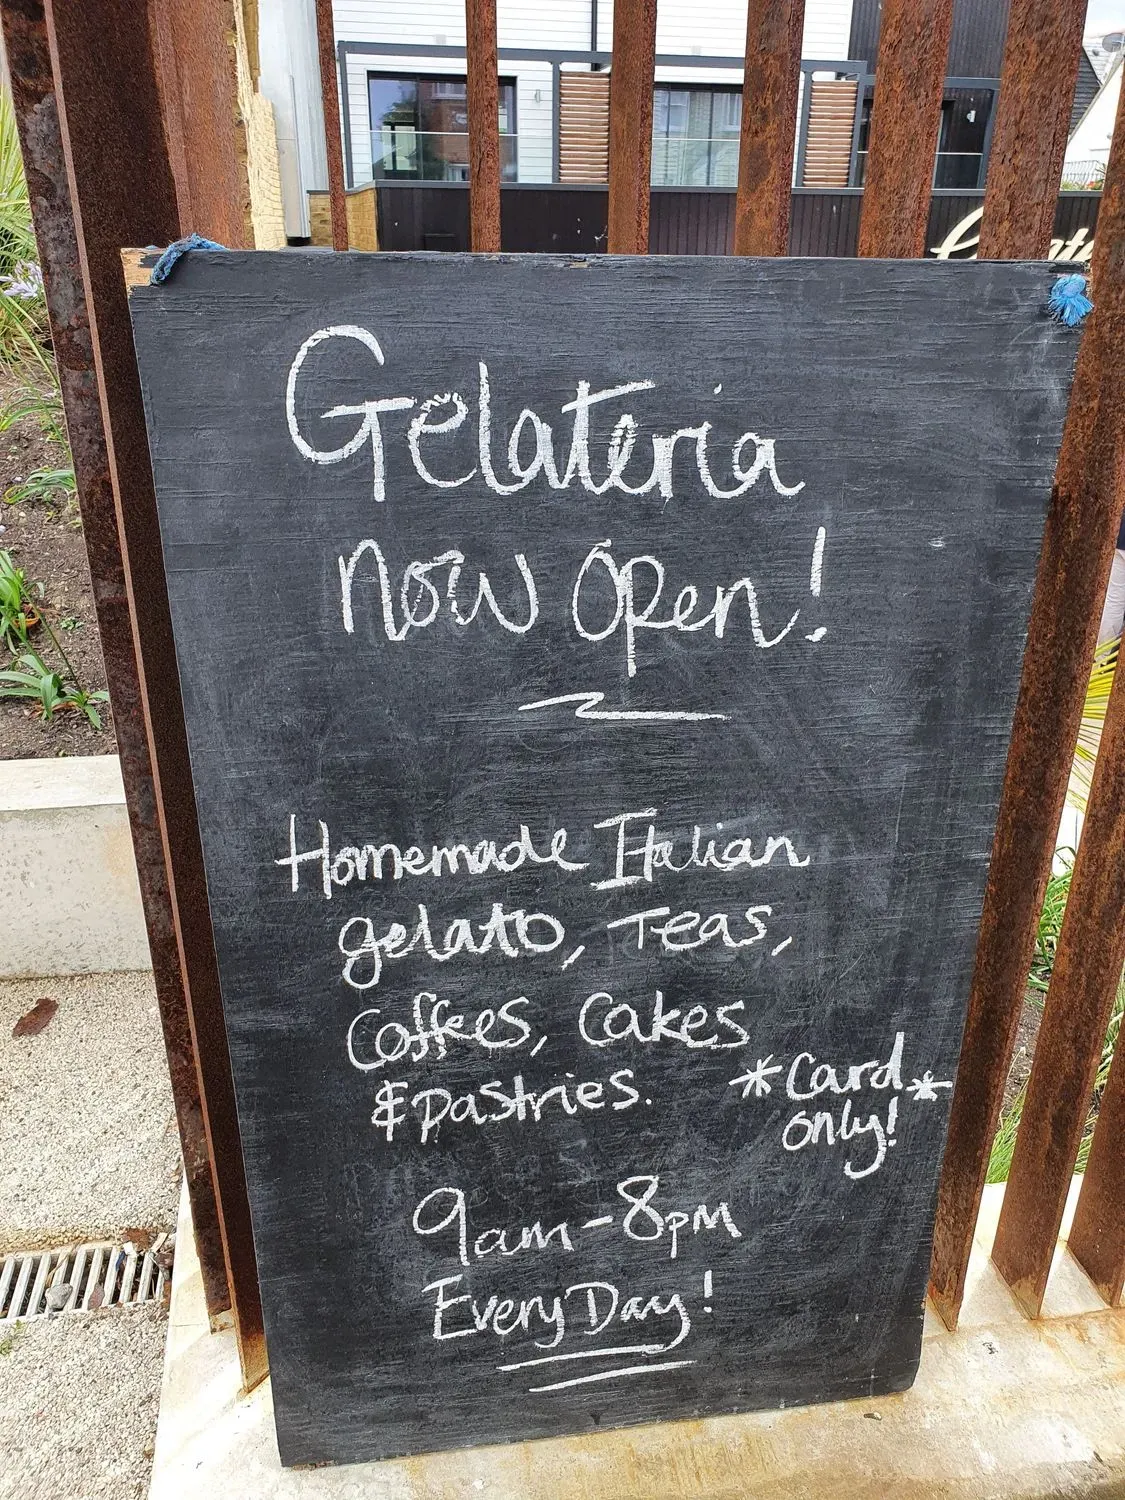 Gelateria
Now Open!
Homemade Italian
gelato, Teas,
Coffees, Cakes
& pastries.
*Card*
only!
9am-8pm
Every Day!